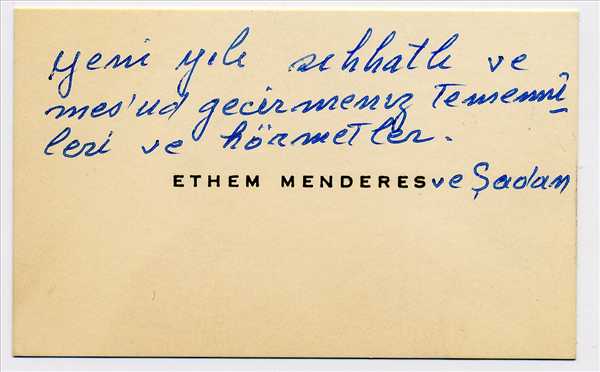 yeni yılı sıhhatli ve
mes'ud geçirmeniz temennî
leri ve hörmetler.
ETHEM MENDERES ve Şadan